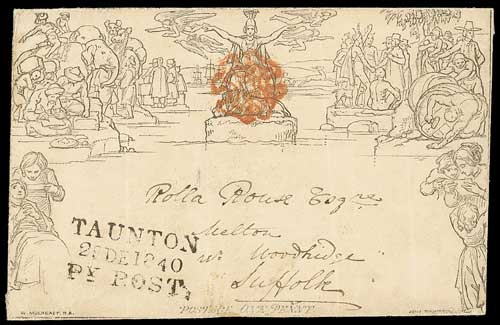 Rolla Rouse Esqre
Melton
Nr Woodbridge
Suffolk
TAUNTON
DE 1840
PY POST
POSTAGE ONE PENNY
W. MULREADY, R.A.
JOHN THOMPSON